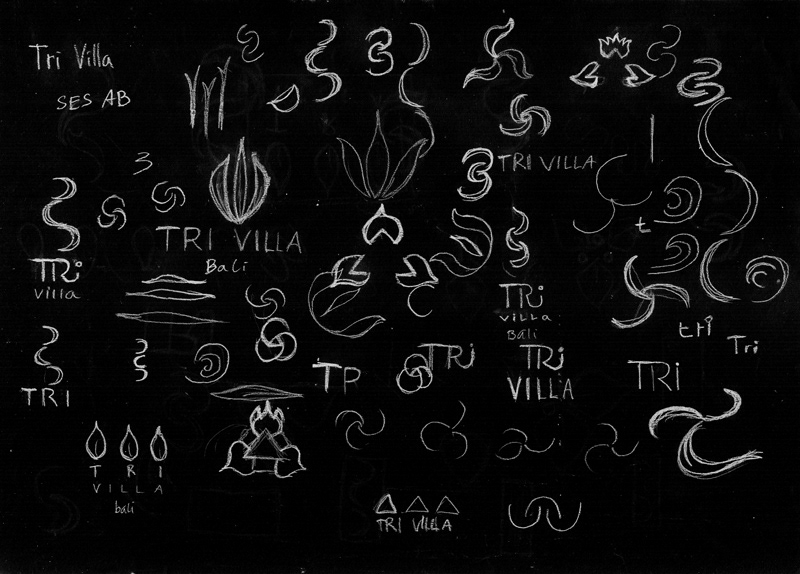 Tri Villa
SES AB
3
TRI VILLA
TRI VILLA
Bali
TRi
villa
t
TRi
villa
Bali
tri
Tri
TRI
TP
TRi
TRi
VILLA
TRi
T R I
V I L L A
bali
TRI VILLA